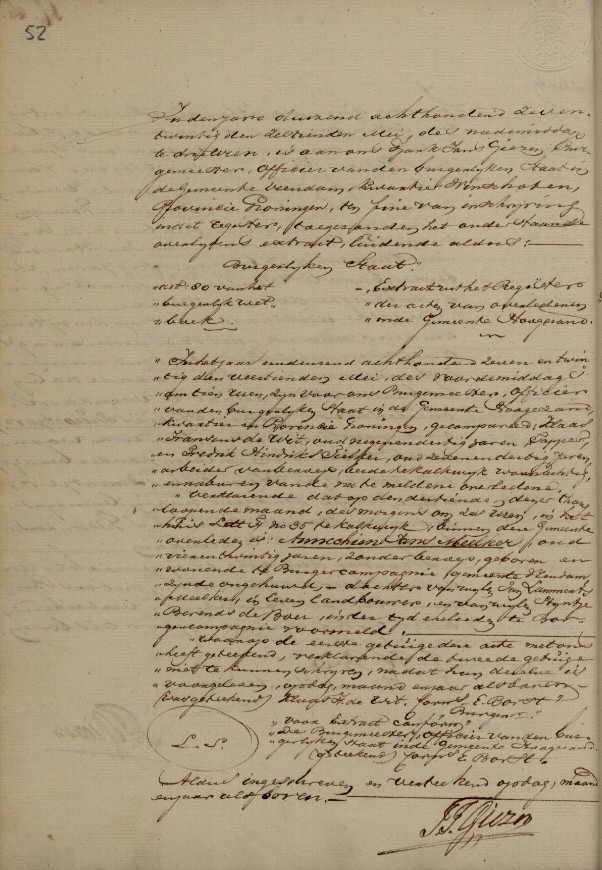 52
In den jare duizend achthonderd zeven
twintig den zestienden Mei, des nademiddags
te drie uren, is aan ons Tjark Jans Giezen, Bur-
gemeester, Officier van den burgerlijken Staat in
de Gemeente Veendam, kwartier Winschoten,
Provincie Groningen, ten fine van inschrijving
in dit register, toegezonden het onderstaande
overlijdens extract, luidende aldus:
" Burgerlijken Staat.
" art: 80 van het – " Extract uit het Register
" burgerlijk wet " der acten van overledenen
" boek. " in de Gemeente Hoogezand.
" In het jaar eenduizend achthonderd zeven en twin
" tig den veertienden Mei, des voordemiddags
" om tien uren, zijn voor ons Burgemeester, Officier
" van den burgerlijken Staat in de Gemeente Hoogezand,
" kwartier en Provincie Groningen, gecompareerd, Klaas
" Fransens de Wit, oud negenendertig jaren, Tapper,
" en Fredrik Hindriks, oud zevenendertig jaren,
" arbeider van beroep, beide te Kalkwijk woonachtig,
" en naburen van de na te meldene overledene,
" verklarende dat op den dertiende dezer
" loopende maand, des morgens om zes uren, in het
" huis Lett. No 35 te Kalkwijk, binnen deze Gemeente
" overleden is: Annechien Jans Meeker, oud
" vierentwintig jaren, zonder beroep, geboren en
" wonende te Borgercompagnie, gemeente Veendam,
" zijnde ongehuwd, – dochter van wijlen Jan Lammerts
" Meeker, in leven landbouwer, en van wijlen Stijntje
" Berends de Boer, in der tijd eheleden te Bor-
" gercompagnie voormeld.
" Waarop de eerste getuige deze acte met ons
" heeft geteekend, verklarende de tweede getuige
" niet te kunnen schrijven, nadat hun dezelve is
" voorgelezen, op dag, maand en jaar als boven –
(was geteekend) Klaas F. de Wit, E. Borst
Burgem."
" voor Extract conform"
" De Burgemeester, Officier van den bur-
" gerlijken Staat in de Gemeente Hoogezand.
(geteekend) E. Borst.
L. S.
Aldus ingeschreven en verteekend op dag, maand
en jaar als boven. –
T. J. Giezen